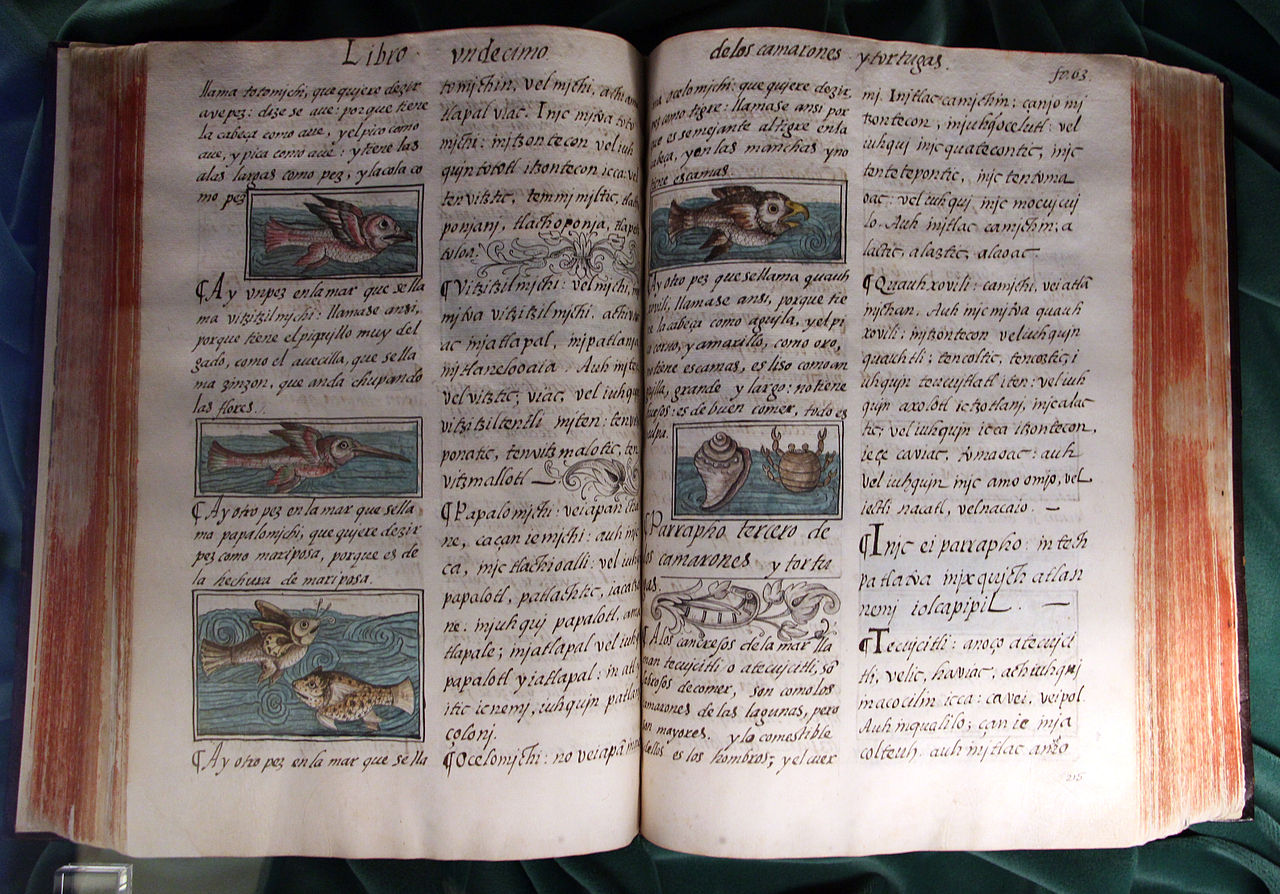 Libro vndecimo
llama totomichi, que quiere dezir
ave pez: dize se aue: porque tiene
la cabeça como aue, y el pico como
aue, y pica como aue: y tiene las
alas largas como pez, y la cola co
mo pez
¶ Ay vn pez en la mar que se lla
ma vitzitzilmichi: llamase ansi,
porque tiene el piquillo muy del
gado, como el auecilla, que se lla
ma zinzon, que anda chupando
las flores.
¶ Ay otro pez en la mar que se lla
ma papalomichi, que quiere dezir
pez como mariposa, porque es de
la hechura de mariposa.
¶ Ay otro pez en la mar que se lla
tomichin, vel michi, achi am
tlapal viac. Injc mitva toto
michi: injtzontecon vel iuh
quin tototl itzontecon icca: vel
tenvitztic, temmimiltic, tla
ponjanj, tlachoponja, tlape
toloa.
¶ Vitzitzilmichi: vel michi,
mitva vitzitzilmichi. athi
ac injatlapal, injpatlanja
injtlanelooaia. Auh injte
vel vitztic, viac, vel iuhqu
vitzitziltentli injten: tenvi
ponatic, tenvitzmalotic, ten
vitzmallotl
¶ Papalomichi: vei apan
ne, caçan ie michi: auh injc
ca, injc tlachioalli: vel iuh
papalotl, patlachtic, iacatz
ne: injuhquj papalotl, ama
tlapale; injatlapal vel iuh
papalotl yiatlapal: in atl
itic ic nemj, iuhqujn patlan
çolonj.
¶ Ocelomichi: no vei apan
de los camarones y tortugas.
fo. 63.
ma ocelomichi: que quiere dezir,
pez como tigre: llamase ansi por
que es semejante al tigre en la
cabeça, y en las manchas y no
tiene escamas.
¶ Ay otro pez que se llama quauh
xovili, llamase ansi, porque tie
ne la cabeça como aguila, y el pi
co corvo, y amarillo, como oro,
no tiene escamas, es liso como an
guilla, grande y largo: no tiene
huesos: es de buen comer, todo es
pulpa.
¶ Parrapho tercero de
los camarones y tortu
gas.
¶ A los cangrejos de la mar lla
man tecujcitli o atecujcitli, sõ
sabrosos de comer, son como los
camarones de las lagunas, pero
son mayores. y lo comestible
dellos es los hombros; y el cuer
mj. Injtlac camjchin: canjo mj
tzontecon, injuhq̃ ocelutl: vel
iuhquj injc quatecontic, injc
tentetepontic, injc tentvma
oac: vel iuhquj injc mocujcuj
lo. Auh injtlac camjchin; a
lactic, alaztic, alaoac.
¶ Quauhxovili: camjchi, vei atlã
mjchan. Auh injc mjtva quauh
xovili: injtzontecon vel iuhqujn
quauhtli: tencoltic, tencoztic; i
uhqujn teucujtlatl iten: vel iuh
qujn axolotl ic tzotlanj, injc alac
tic; vel iuhqujn icca itzontecon,
iece caviac, tvmaoac: auh
vel iuhqujn injc amo omjo, vel
ixtli nacatl, vel nacaio.
¶ Injc ei parrapho: intech
patlatva injxqujch atlan
nemj iolcapipil.
¶ Tecujcitli: anoço atecujci
tli, velic, haviac, achi iuhqujn
inacocilin icca: ca vei, veipol.
Auh inqualilo; çan ie inja
colteuh. auh injtlac amo
215